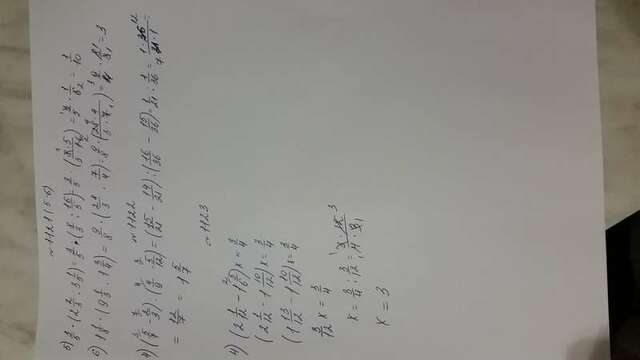 №1121(5-6)
5) 3/5 · (2 2/3 : 3 1/5) = 3/5 · (8/3 : 16/5) = 3/5 · (8·5/3·16) = 3/5 · 1/6 = 1/10
6) 1 1/8 · (9 1/3 : 1 3/4) = 9/8 · (28/3 : 7/4) = 9/8 · (28·4/3·7) = 3
№1122
4) (5/7 - 2/3) : (4/9 - 5/12) = (15/21 - 14/21) : (16/36 - 15/36) = 1/21 : 1/36 = 1·36/21·1 =
= 12/7 = 1 5/7
№1123
4) (2 1/12 - 1 5/6)x = 3/4
(2 1/12 - 1 10/12)x = 3/4
(1 13/12 - 1 10/12)x = 3/4
3/12 x = 3/4
x = 3/4 : 3/12 = 3·12/4·3
x = 3